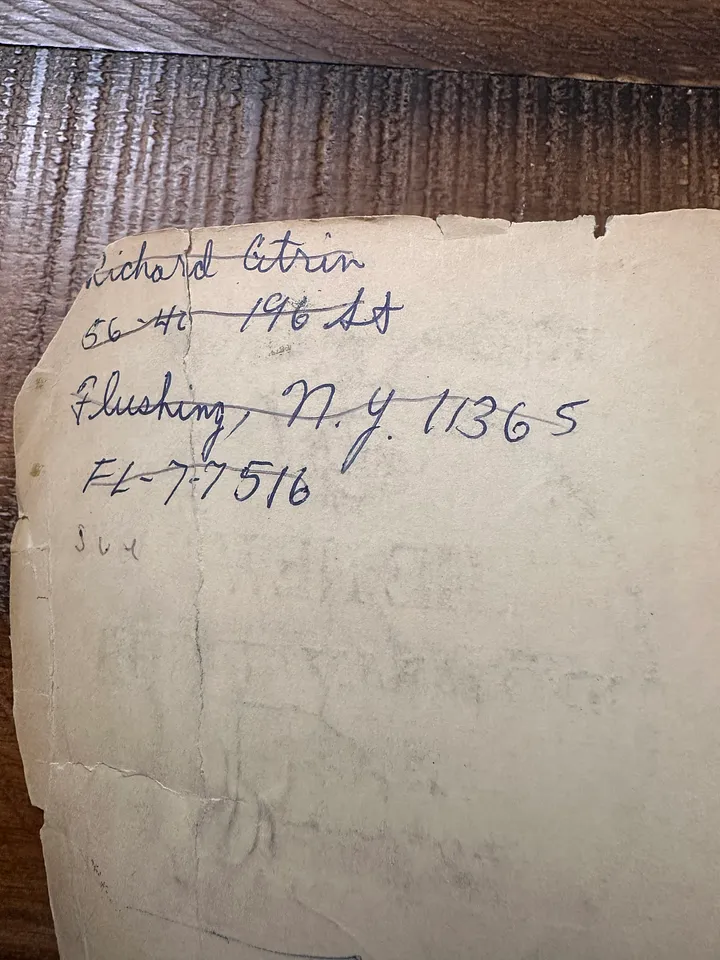 Richard Citrin
56-40 196 St
Flushing, N.Y. 11365
FL-7-7516